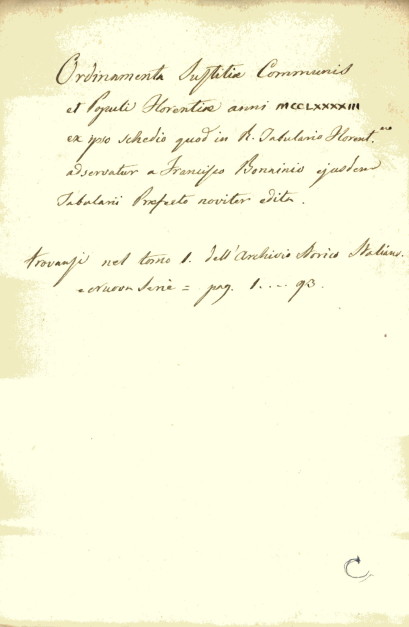 Ordinamenta Justitiæ Communis
et Populi Florentiæ anni MCCLXXXXIII
ex ipso schedio quod in R. Tabulario Florent.no
adservatur a Francisco Bonainio ejusdem
Tabularii Præfecto noviter edita.
trovansi nel tomo 1. dell'Archivio Storico Italiano.
= Nuova Serie = pag. 1 . . - 93.
C